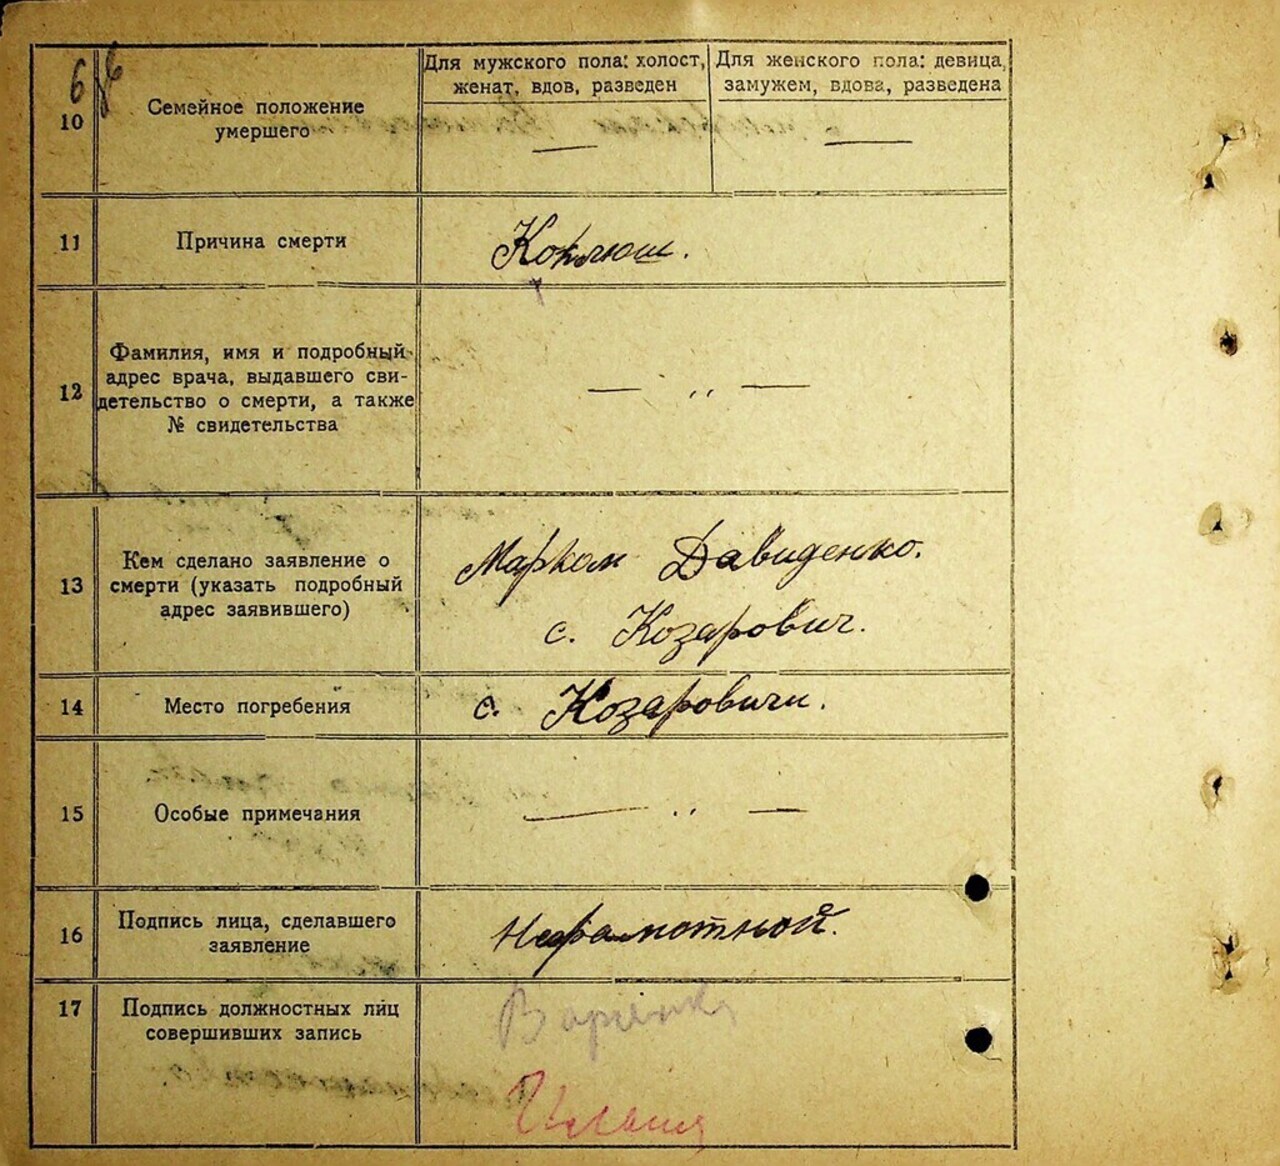 6
10
Семейное положение
умершего
Для мужского пола: холост,
женат, вдов, разведен
Для женского пола: девица,
замужем, вдова, разведена
—
—
11
Причина смерти
Коклюш.
12
Фамилия, имя и подробный
адрес врача, выдавшего сви-
детельство о смерти, а также
№ свидетельства
— ,, —
13
Кем сделано заявление о
смерти (указать подробный
адрес заявившего)
Марком Давиденко.
с. Козарович.
14
Место погребения
с. Козаровичи.
15
Особые примечания
— ,, —
16
Подпись лица, сделавшего
заявление
Неграмотной.
17
Подпись должностных лиц
совершивших запись